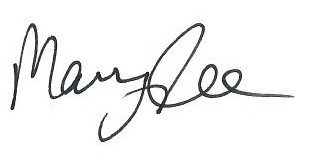 Mary Lee